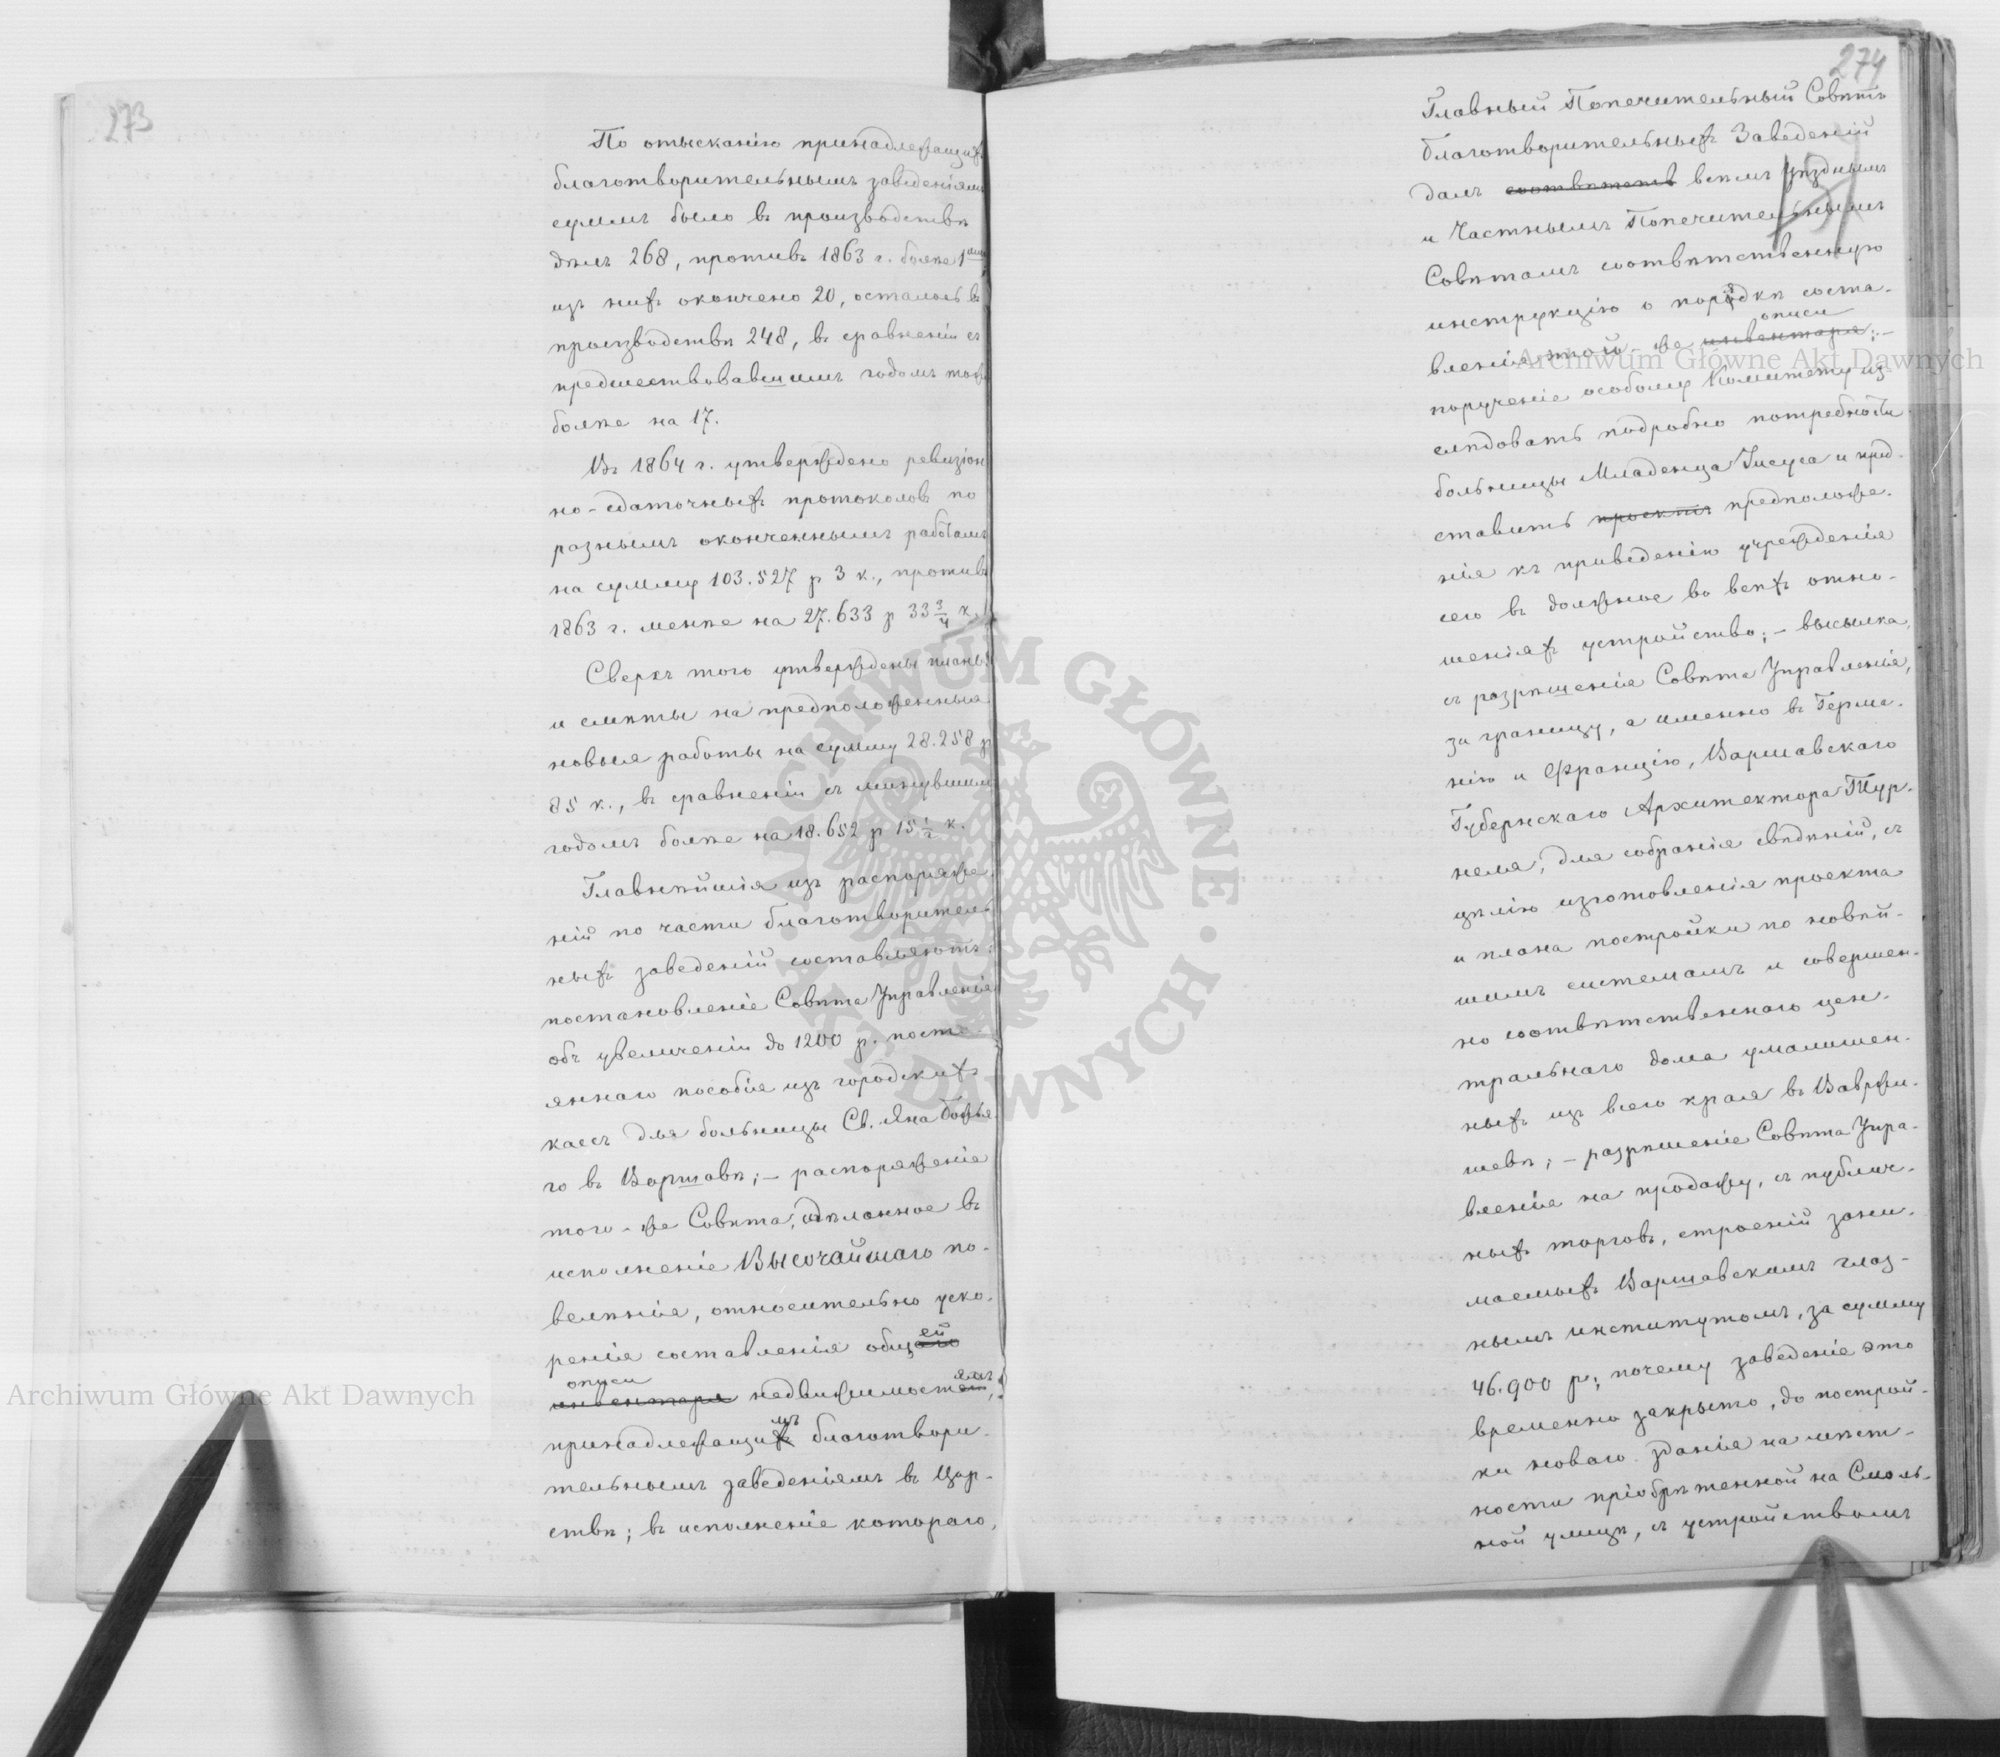 273
По отысканію принадлежащихъ
благотворительнымъ заведеніямъ
суммъ было въ производствѣ
дѣлъ 268, противъ 1863 г. болѣе 1
изъ нихъ окончено 20, осталось въ
производствѣ 248, въ сравненіи съ
предшествовавшимъ годомъ тоже
болѣе на 17.
Въ 1864 г. утверждено ревизіон
но-сдаточныхъ протоколовъ по
разнымъ оконченнымъ работамъ
на сумму 103.527 р 3 к., противъ
1863 г. менѣе на 27.633 р 33 3/4 к.
Сверхъ того утверждены планы
и смѣты на предположенныя
новыя работы на сумму 28.258 р
85 к., въ сравненіи съ минувшимъ
годомъ болѣе на 18.652 р 15 1/2 к.
Главнѣйшія изъ распоряже-
ній по части благотворитель
ныхъ заведеній составляютъ:
постановленіе Совѣта Управленія
объ увеличеніи до 1200 р. посто-
яннаго пособія изъ городскихъ
кассъ для больницы Св. Яна Божья
го въ Варшавѣ; – распоряженіе
того-же Совѣта, сдѣланное въ
исполненіе Высочайшаго по-
велѣнія, относительно уско-
ренія составленія общей
описи
инвентаря недвижимостямъ,
принадлежащимъ благотвори-
тельнымъ заведеніямъ въ Цар-
ствѣ; въ исполненіе котораго,
274
Главный Попечительный Совѣтъ
благотворительныхъ Заведеній
далъ соотвѣтств всѣмъ Уѣзднымъ
и Частнымъ Попечительнымъ
Совѣтамъ соотвѣтственную
инструкцію о порядкѣ соста-
описи
вленія этой-же инвентаря; –
порученіе особому Комитету из-
слѣдовать подробно потребности
больницы Младенца Іисуса и пред-
ставить проектъ предположе-
нія къ приведенію учрежденія
сего въ должное во всѣхъ отно-
шеніяхъ устройство; – высылка,
съ разрѣшенія Совѣта Управленія,
за границу, а именно въ Герма-
нію и Францію, Варшавскаго
Губернскаго Архитектора Тур-
неля, для собранія свѣдѣній, съ
цѣлію изготовленія проекта
и плана постройки по новѣй-
шимъ системамъ и совершен-
но соотвѣтственнаго цен-
тральнаго дома умалишен-
ныхъ изъ всего края въ Вавржи-
шевѣ; – разрѣшеніе Совѣта Упра-
вленія на продажу, съ публич-
ныхъ торговъ, строеній зани-
маемыхъ Варшавскимъ глаз-
нымъ институтомъ, за сумму
46.900 р; почему заведеніе это
временно закрыто, до построй-
ки новаго зданія на мѣст-
ности пріобрѣтенной на Смоль-
ной улицѣ, съ устройствомъ
Archiwum Główne Akt Dawnych
Archiwum Główne Akt Dawnych
ARCHIWUM GŁÓWNE AKT DAWNYCH